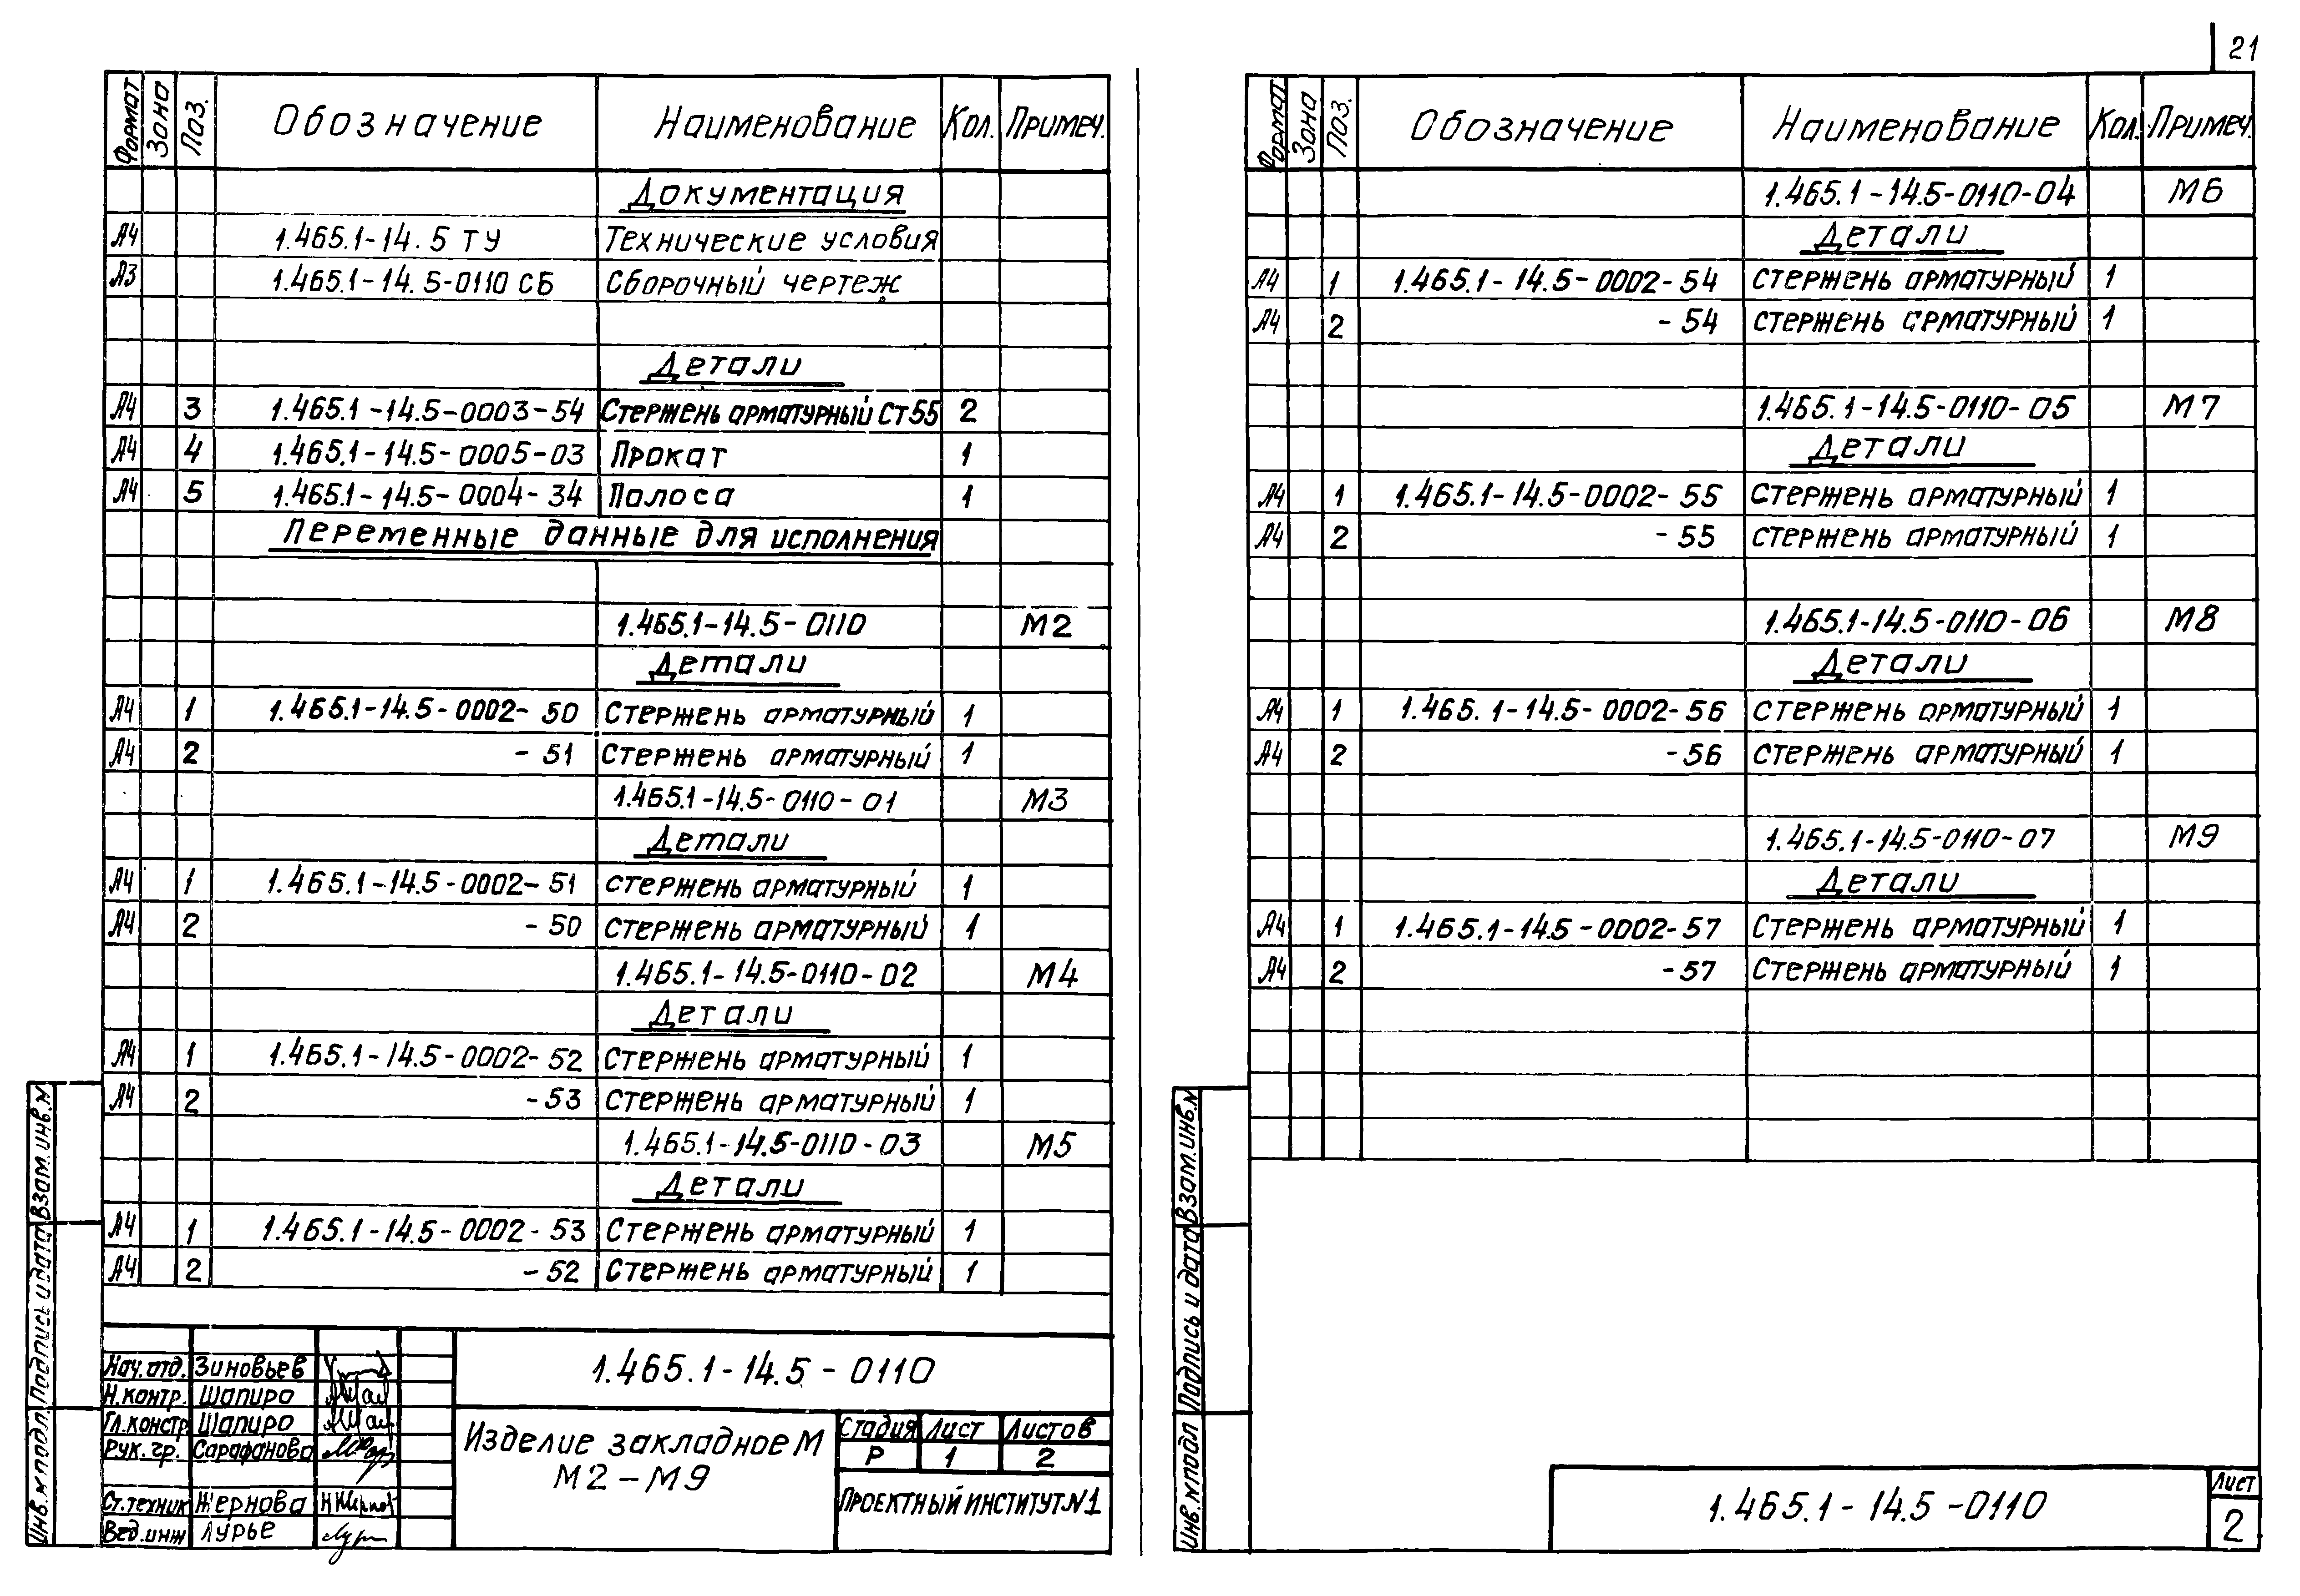 21
Формат Зона Поз. Обозначение Наименование Кол. Примеч.
Документация
А4 1.465.1-14.5 ТУ Технические условия
А3 1.465.1-14.5-0110 СБ Сборочный чертеж
Детали
А4 3 1.465.1-14.5-0003-54 Стержень арматурный Ст55 2
А4 4 1.465.1-14.5-0005-03 Прокат 1
А4 5 1.465.1-14.5-0004-34 Полоса 1
Переменные данные для исполнения
1.465.1-14.5-0110 М2
Детали
А4 1 1.465.1-14.5-0002-50 Стержень арматурный 1
А4 2 -51 Стержень арматурный 1
1.465.1-14.5-0110-01 М3
Детали
А4 1 1.465.1-14.5-0002-51 стержень арматурный 1
А4 2 -50 Стержень арматурный 1
1.465.1-14.5-0110-02 М4
Детали
А4 1 1.465.1-14.5-0002-52 Стержень арматурный 1
А4 2 -53 Стержень арматурный 1
1.465.1-14.5-0110-03 М5
Детали
А4 1 1.465.1-14.5-0002-53 Стержень арматурный 1
А4 2 -52 Стержень арматурный 1
Взам.инв.№
Подпись и дата
Инв.№подл.
Нач.отд. Зиновьев
Н.контр. Шапиро
Гл.констр. Шапиро
Рук.гр. Сарафанова
Ст.техник Жернова
Вед.инж Лурье
1.465.1-14.5-0110
Изделие закладное М
М2-М9
Стадия Лист Листов
Р 1 2
Проектный институт №1
Формат Зона Поз. Обозначение Наименование Кол. Примеч.
1.465.1-14.5-0110-04 М6
Детали
А4 1 1.465.1-14.5-0002-54 Стержень арматурный 1
А4 2 -54 стержень арматурный 1
1.465.1-14.5-0110-05 М7
Детали
А4 1 1.465.1-14.5-0002-55 Стержень арматурный 1
А4 2 -55 стержень арматурный 1
1.465.1-14.5-0110-06 М8
Детали
А4 1 1.465.1-14.5-0002-56 Стержень арматурный 1
А4 2 -56 Стержень арматурный 1
1.465.1-14.5-0110-07 М9
Детали
А4 1 1.465.1-14.5-0002-57 Стержень арматурный 1
А4 2 -57 Стержень арматурный 1
Взам.инв.№
Подпись и дата
Инв.№подл
1.465.1-14.5-0110
Лист
2